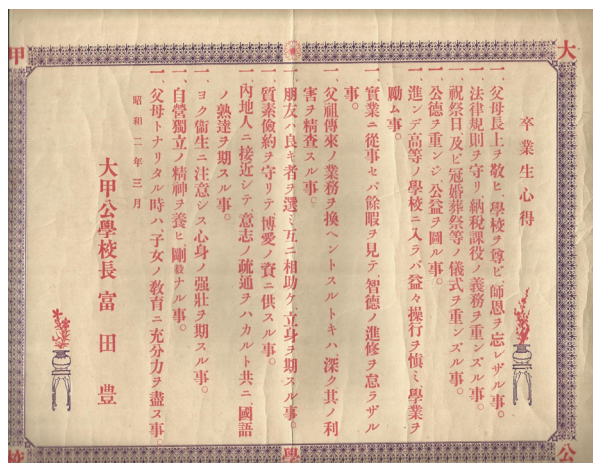 大
甲
公
學
校
卒業生心得
一、父母長上ヲ敬ヒ、學校ヲ尊ビ、師恩ヲ忘レザル事。
一、法律規則ヲ守リ、納稅課役ノ義務ヲ重ンズル事。
一、祝祭日及ビ冠婚葬祭等ノ儀式ヲ重ンズル事。
一、公德ヲ重ンジ、公益ヲ圖ル事。
一、進ンデ高等ノ學校ニ入ラバ益々操行ヲ愼ミ、學業ヲ
勵ム事。
一、實業ニ從事セバ餘暇ヲ見テ、智德ノ進修ヲ怠ラザル
事。
一、父祖傳來ノ業務ヲ換ヘントスルトキハ深ク其ノ利
害ヲ精査スル事。
一、朋友ハ良キ者ヲ選ミ互ニ相助ケ、立身ヲ期スル事。
一、質素儉約ヲ守リテ、博愛ノ資ニ供スル事。
一、內地人ニ接近シテ、意志ノ疏通ヲハカルト共ニ國語
ノ熟達ヲ期スル事。
一、ヨク衞生ニ注意シ、心身ノ强壯ヲ期スル事。
一、自營獨立ノ精神ヲ養ヒ剛毅ナル事。
一、父母トナリタル時ハ、子女ノ敎育ニ充分力ヲ盡ス事
昭和二年三月
大甲公學校長 富田豊